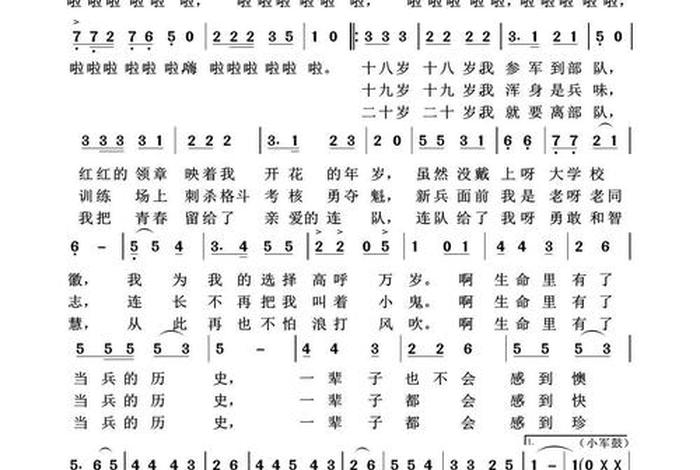 啦 啦啦啦 啦啦 啦， 啦啦 啦啦啦，啦啦啦啦 啦，
7 7 2 7 6 5 0 | 2 2 2 3 5 | 1 0 |: 3 3 3 | 2 2 2 2 | 3. 1 2 1 | 5 0 |
啦啦啦 啦啦 啦嗨 啦啦啦啦 啦啦 啦。 十八岁 十八 岁我 参军到部 队，
十九岁 十九 岁我 浑身是兵 味，
二十岁 二十 岁我 就要离部 队，
3 3 3 3 1 | 2 2 2 | 3. 1 2 3 | 2 0 | 5 5 3 1 | 6 6 | 7 7 2 1 |
红红的 领章 映着我 开花 的年 岁， 虽然没戴 上呀 大学校
训练 场上 刺杀格斗 考核 勇夺 魁， 新兵面前 我是 老呀老同
我把 青春 留给了 亲爱的 连 队， 连队给了 我呀 勇敢和智
6 - | 5 5 4 | 3. 4 5 5 | 2 2 0 5 | 1 0 1 | 4 4 3 | 2 6 |
徽， 我 为 我的选择 高呼 万 岁。 啊 生命里 有了
志， 连 长 不再把我 叫着 小 鬼。 啊 生命里 有了
慧， 从 此 再也不怕 浪打 风 吹。 啊 生命里 有了
5 5 5 5 3 | 5 - | 4 4 3 | 2 2 6 | 5 5 5 3 |
当兵的历 史， 一辈子 也不会 感到懊
当兵的历 史， 一辈子 都 会 感到快
当兵的历 史， 一辈子 都 会 感到珍
1. （小军鼓）